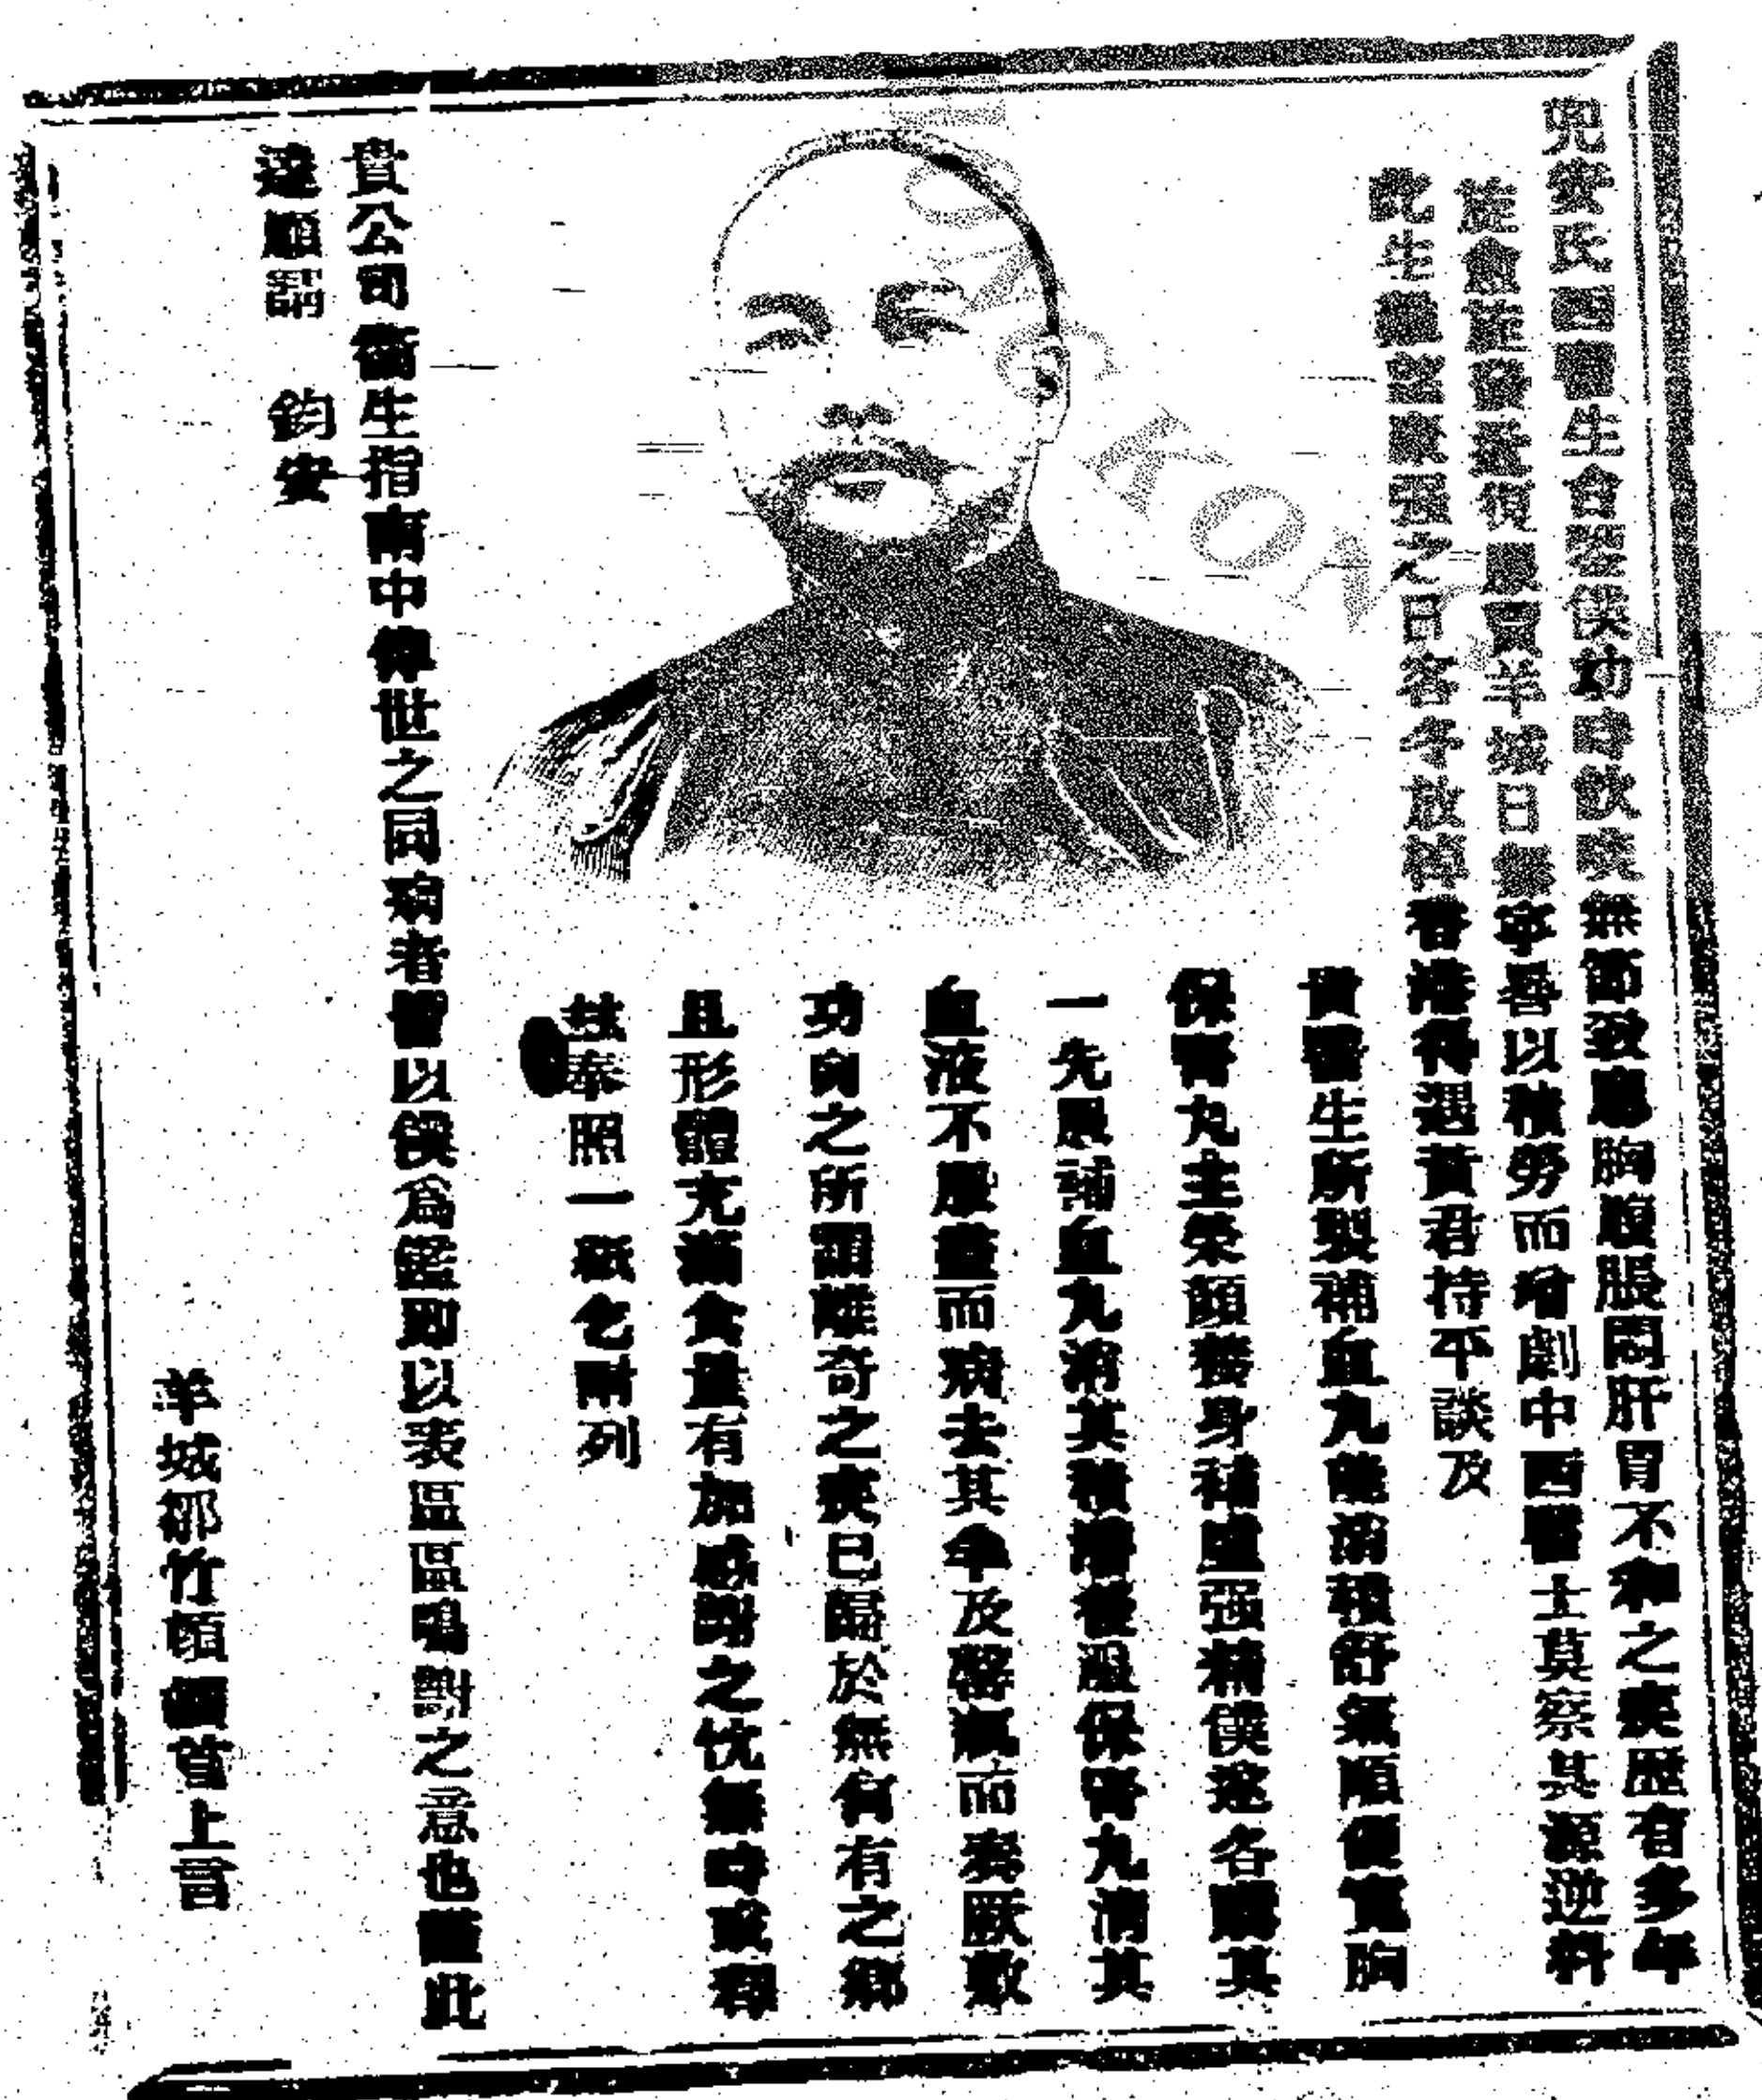 兜安氏西醫生台鑒僕幼時飲食無節致患胸腹脹悶肝胃不和之疾歷有多年
旋愈旋發遂視履買羊城日無寧晷以積勞而增劇中西醫士莫察其源逆料
此生難望康强之日客冬放棹香港得遇黃君持平談及
貴醫生所製補血丸能消積舒氣順便寬胸
保腎丸主榮顏養身補鹽强精僕遂各購其
一先服補血丸消其積滯後服保腎丸清其
血液不服盡而病去其半及罄瓶而奏厥數
功向之所謂離奇之疾已歸於無何有之鄉
且形體充滿食量有加感謝之忱無時或釋
茲奉照一紙乞附列
貴公司衞生指南中俾世之同病者皆以僕爲鑒則以表區區鳴謝之意也謹此
達順請 鈞安
羊城鄒竹頓首上言